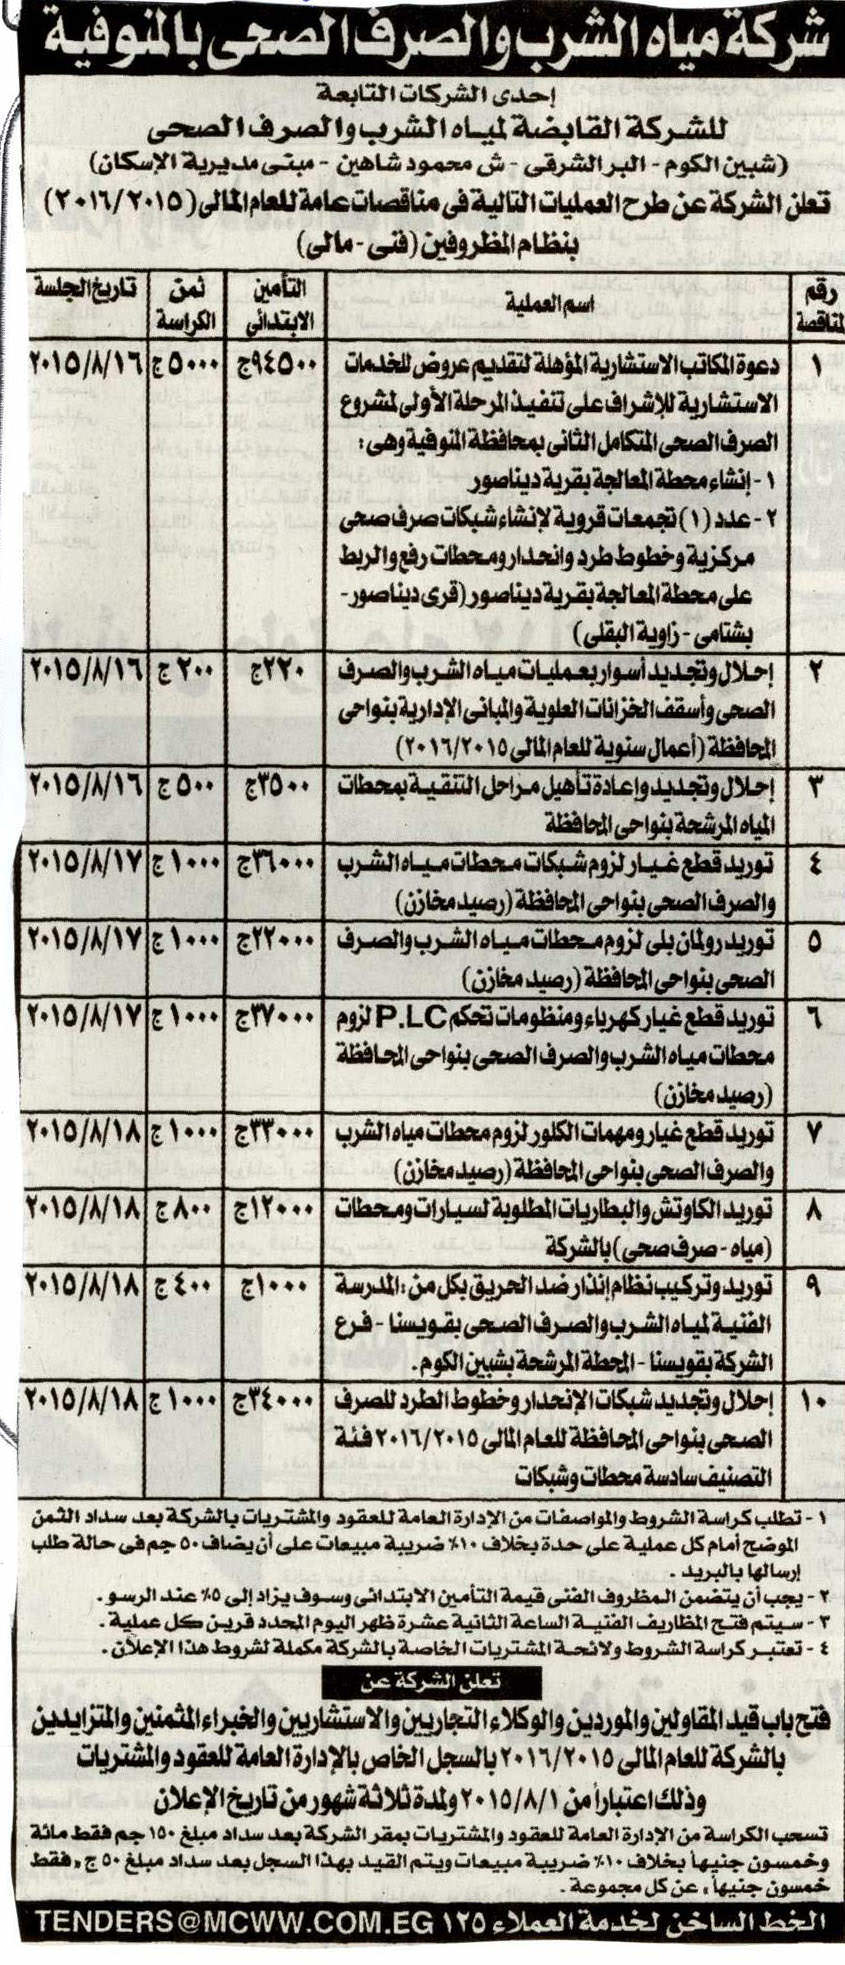 شركة مياه الشرب والصرف الصحى بالمنوفية
إحدى الشركات التابعة
للشركة القابضة لمياه الشرب والصرف الصحى
(شبين الكوم - البر الشرقى - ش محمود شاهين - مبنى مديرية الإسكان)
تعلن الشركة عن طرح العمليات التالية فى مناقصات عامة للعام المالى (٢٠١٦/٢٠١٥)
بنظام المظروفين (فنى - مالى)
رقم المناقصة | اسم العملية | التأمين الابتدائى | ثمن الكراسة | تاريخ الجلسة
١ | دعوة المكاتب الاستشارية المؤهلة لتقديم عروض للخدمات | ٩٤٥٠٠ج | ٥٠٠٠ ج | ٢٠١٥/٨/١٦
الاستشارية للإشراف على تنفيذ المرحلة الأولى لمشروع
الصرف الصحى المتكامل الثانى بمحافظة المنوفية وهى:
١- إنشاء محطة المعالجة بقرية ديناصور
٢- عدد (١) تجمعات قروية لإنشاء شبكات صرف صحى
مركزية وخطوط طرد وانحدار ومحطات رفع والربط
على محطة المعالجة بقرية ديناصور (قرى ديناصور -
بشتامى - زاوية البقلى)
٢ | إحلال وتجديد أسوار بعمليات مياه الشرب والصرف | ٢٢٠ج | ٢٠٠ ج | ٢٠١٥/٨/١٦
الصحى وأسقف الخزانات العلوية والمبانى الإدارية بنواحى
المحافظة (أعمال سنوية للعام المالى ٢٠١٦/٢٠١٥)
٣ | إحلال وتجديد وإعادة تأهيل مراحل التنقية بمحطات | ٣٥٠٠ج | ٥٠٠ ج | ٢٠١٥/٨/١٦
المياه المرشحة بنواحى المحافظة
٤ | توريد قطع غيار لزوم شبكات محطات مياه الشرب | ٣٦٠٠٠ج | ١٠٠٠ ج | ٢٠١٥/٨/١٧
والصرف الصحى بنواحى المحافظة (رصيد مخازن)
٥ | توريد رولمان بلى لزوم محطات مياه الشرب والصرف | ٢٢٠٠٠ج | ١٠٠٠ ج | ٢٠١٥/٨/١٧
الصحى بنواحى المحافظة (رصيد مخازن)
٦ | توريد قطع غيار كهرباء ومنظومات تحكم P.LC لزوم | ٣٧٠٠٠ج | ١٠٠٠ ج | ٢٠١٥/٨/١٧
محطات مياه الشرب والصرف الصحى بنواحى المحافظة
(رصيد مخازن)
٧ | توريد قطع غيار ومهمات الكلور لزوم محطات مياه الشرب | ٣٣٠٠٠ج | ١٠٠٠ ج | ٢٠١٥/٨/١٨
والصرف الصحى بنواحى المحافظة (رصيد مخازن)
٨ | توريد الكاوتش والبطاريات المطلوبة لسيارات ومحطات | ١٢٠٠٠ج | ٨٠٠ ج | ٢٠١٥/٨/١٨
(مياه - صرف صحى) بالشركة
٩ | توريد وتركيب نظام إنذار ضد الحريق بكل من: المدرسة | ١٠٠٠ج | ٤٠٠ ج | ٢٠١٥/٨/١٨
الفنية لمياه الشرب والصرف الصحى بقويسنا - فرع
الشركة بقويسنا - المحطة المرشحة بشبين الكوم.
١٠ | إحلال وتجديد شبكات الإنحدار وخطوط الطرد للصرف | ٣٤٠٠٠ج | ١٠٠٠ ج | ٢٠١٥/٨/١٨
الصحى بنواحى المحافظة للعام المالى ٢٠١٦/٢٠١٥ فئة
التصنيف سادسة محطات وشبكات
١- تطلب كراسة الشروط والمواصفات من الإدارة العامة للعقود والمشتريات بالشركة بعد سداد الثمن
الموضح أمام كل عملية على حدة بخلاف ١٠٪ ضريبة مبيعات على أن يضاف ٥٠ جم فى حالة طلب
إرسالها بالبريد.
٢- يجب أن يتضمن المظروف الفنى قيمة التأمين الابتدائى وسوف يزاد إلى ٥٪ عند الرسو.
٣- سيتم فتح المظاريف الفنية الساعة الثانية عشرة ظهر اليوم المحدد قرين كل عملية.
٤- تعتبر كراسة الشروط ولائحة المشتريات الخاصة بالشركة مكملة لشروط هذا الإعلان.
تعلن الشركة عن
فتح باب قيد المقاولين والموردين والوكلاء التجاريين والاستشاريين والخبراء المثمنين والمتزايدين
بالشركة للعام المالى ٢٠١٦/٢٠١٥ بالسجل الخاص بالإدارة العامة للعقود والمشتريات
وذلك اعتباراً من ٢٠١٥/٨/١ ولمدة ثلاثة شهور من تاريخ الإعلان
تسحب الكراسة من الإدارة العامة للعقود والمشتريات بمقر الشركة بعد سداد مبلغ ١٥٠ جم فقط مائة
وخمسون جنيهاً بخلاف ١٠٪ ضريبة مبيعات ويتم القيد بهذا السجل بعد سداد مبلغ ٥٠ ج «فقط
خمسون جنيهاً» عن كل مجموعة.
الخط الساخن لخدمة العملاء ١٢٥ TENDERS@MCWW.COM.EG